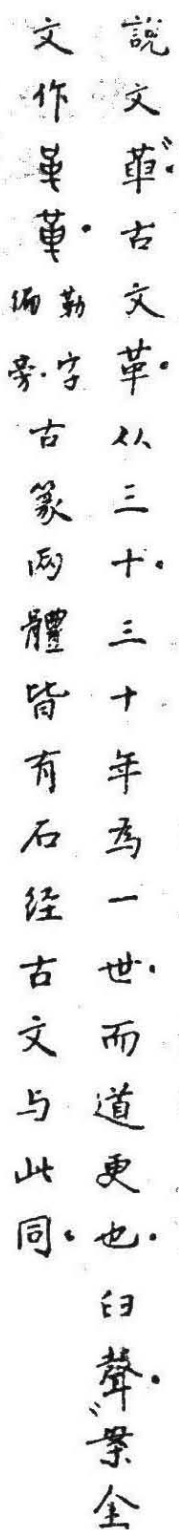 說文「𠦶。古文革。从三十。三十年為一世。而道更也。𦥑聲。」案金
文作𠦶革。勒字偏旁。古篆两體皆有石经古文与此同。